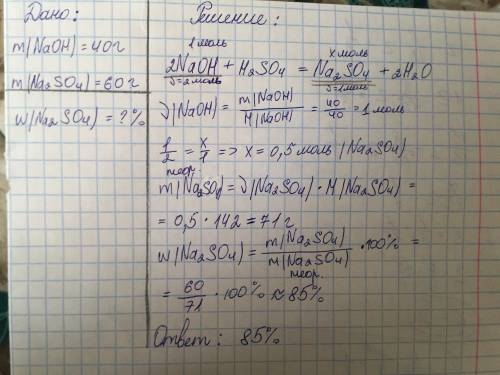 Дано:
m(NaOH) = 40г
m(Na₂SO₄) = 60г
w(Na₂SO₄) = ? %
Решение:
1 моль
x моль
2NaOH + H₂SO₄ = Na₂SO₄ + 2H₂O
ν=2моль
ν=1моль
ν(NaOH) = m(NaOH)/M(NaOH) = 40/40 = 1 моль
1/2 = x/1 => x = 0,5 моль (Na₂SO₄)
теор.
m(Na₂SO₄) = ν(Na₂SO₄) · M(Na₂SO₄) =
= 0,5 · 142 = 71 г
w(Na₂SO₄) = m(Na₂SO₄)/m(Na₂SO₄) · 100% =
теор.
= 60/71 · 100% ≈ 85%
Ответ: 85%